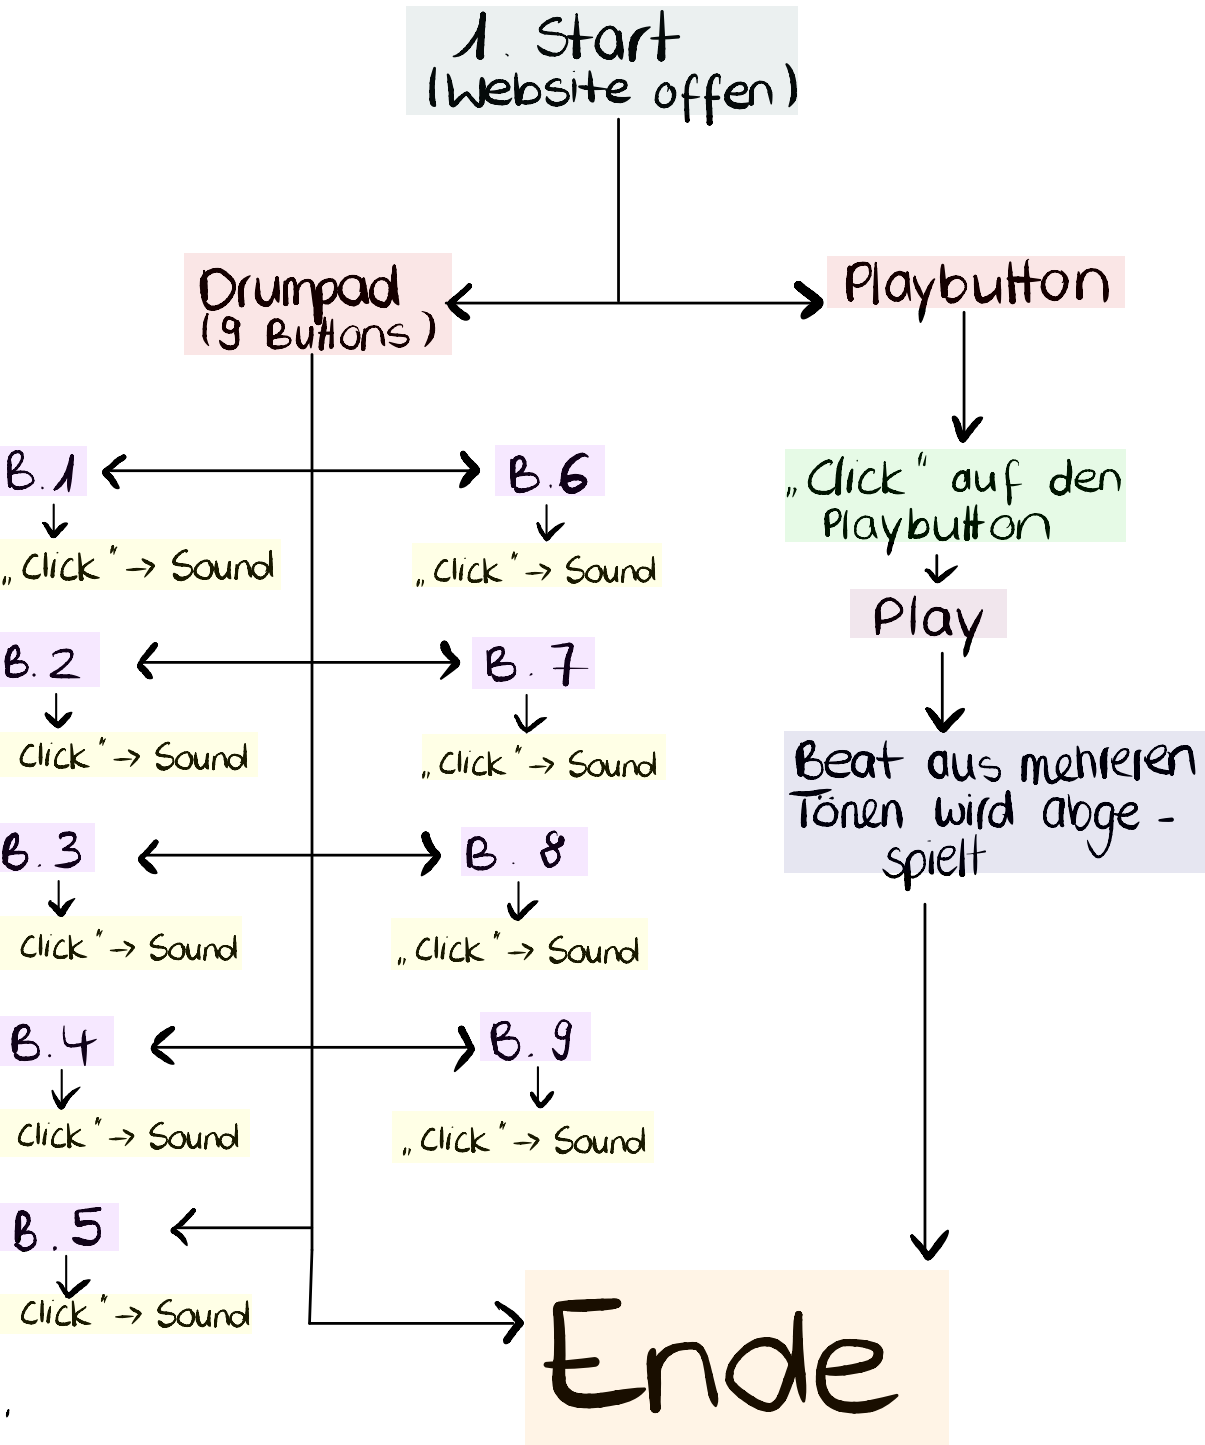 1. Start
(Website offen)
Drumpad
(9 Buttons)
Playbutton
B.1
„Click" → Sound
B.6
„Click" → Sound
B.2
Click" → Sound
B.7
„Click" → Sound
B.3
Click" → Sound
B.8
„Click" → Sound
B.4
Click" → Sound
B.9
„Click" → Sound
B.5
Click" → Sound
„Click" auf den
Playbutton
Play
Beat aus mehreren
Tönen wird abge-
spielt
Ende